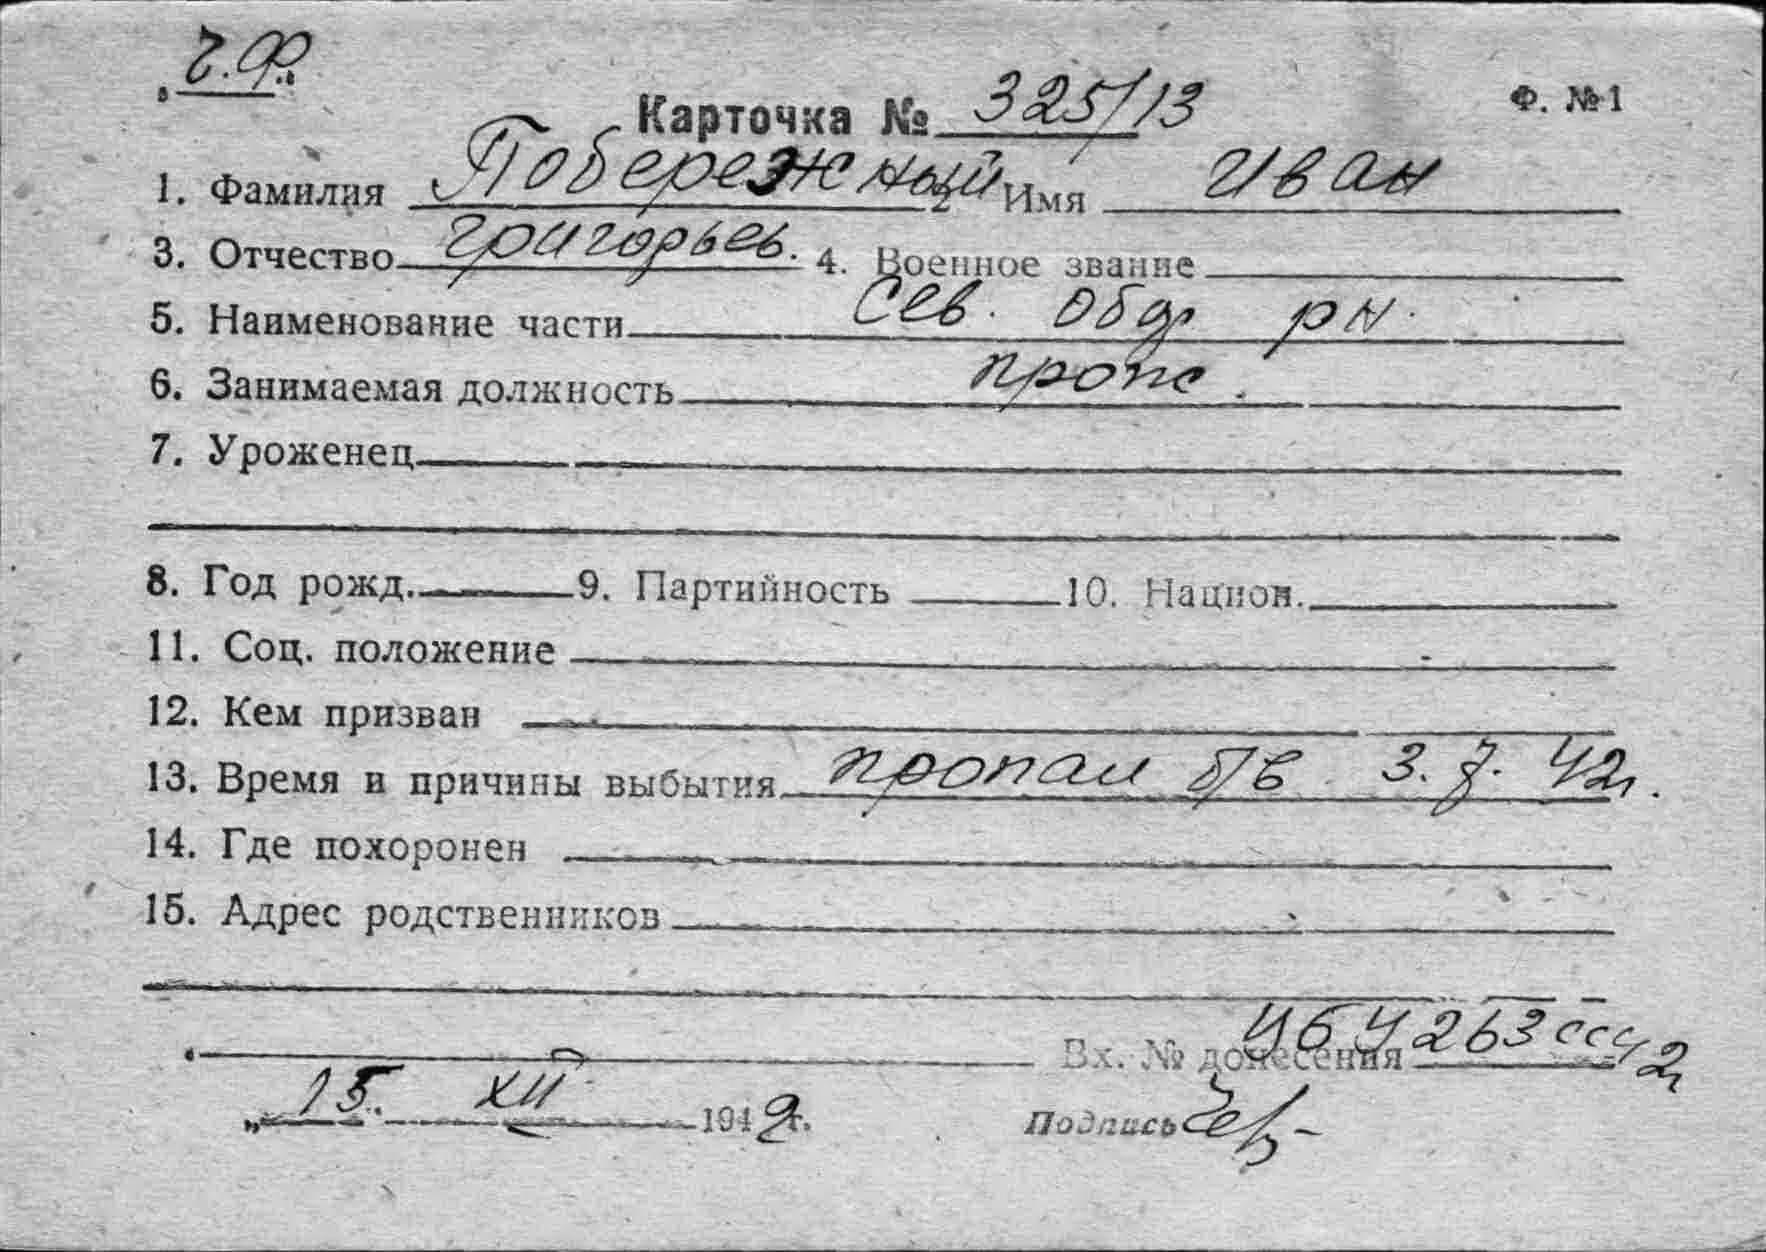 „Ч.Ф."
Карточка № 325/13 Ф. №1
1. Фамилия Побережный 2 Имя Иван
3. Отчество Григорьев. 4. Военное звание
5. Наименование части Сев. обор рн.
6. Занимаемая должность
7. Уроженец
8. Год рожд. 9. Партийность 10. Национ.
11. Соц. положение
12. Кем призван
13. Время и причины выбытия пропал б/в 3.7.42г.
14. Где похоронен
15. Адрес родственников
Вх. № донесения
„15" XII 1942г. Подпись